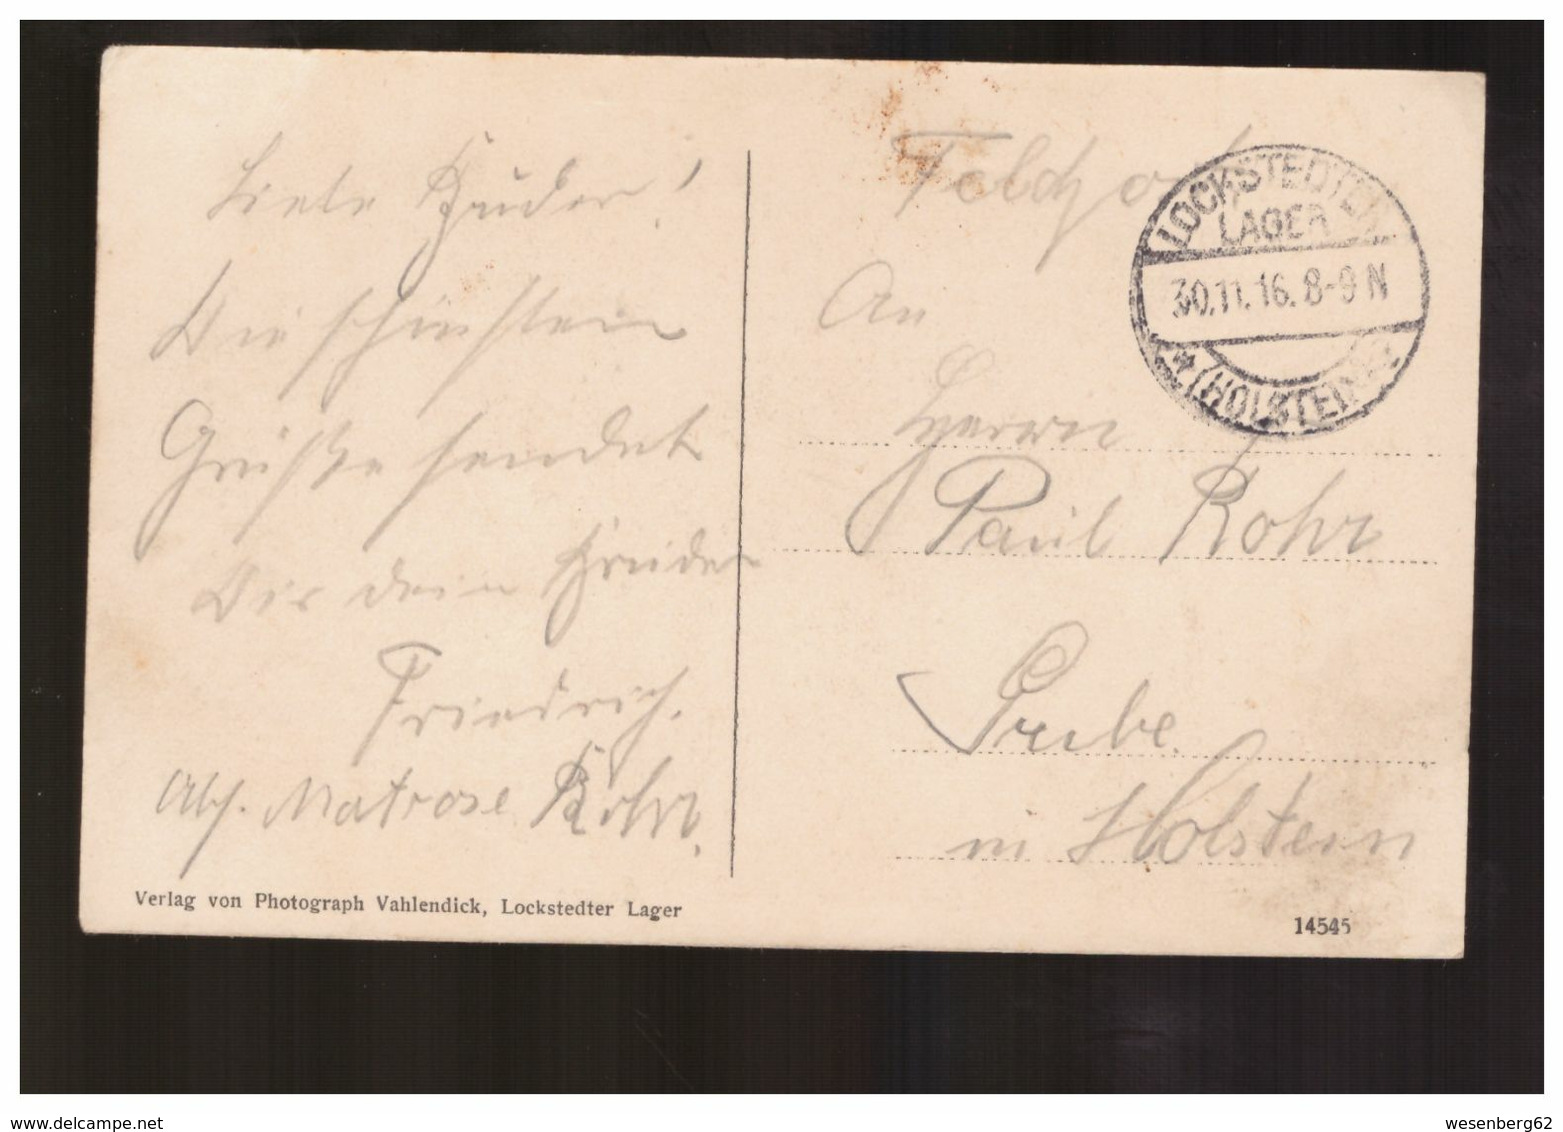 Liebe Bruder!
Die schönsten
Grüße sendet
Dir dein Bruder
Friedrich.
Abs. Matrose Rohr.
Verlag von Photograph Vahlendick, Lockstedter Lager
Feldpost
LOCKSTEDTER
LAGER
30.11.16. 8-9 N
* (HOLSTEIN) *
An
Herrn
Paul Rohr
Grube
in Holstein
14545
wesenberg62